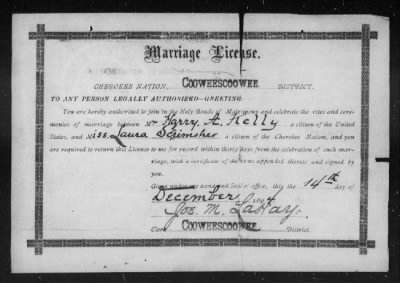 Marriage License.
CHEROKEE NATION, COOWEESCOOWEE DISTRICT.
TO ANY PERSON LEGALLY AUTHORIZED—GREETING:
You are hereby authorized to join in the Holy Bonds of Matrimony and celebrate the rites and cere-
monies of marriage between Mr Harry A. Kelly a citizen of the United
States, and Miss. Laura Scrimsher a citizen of the Cherokee Nation, and you
are required to return this License to me for record within thirty days from the celebration of such mar-
riage, with a certificate of the same appended thereto and signed by
you.
Given under my hand and Seal of office, this the 14th day of
December 189
Jos. M. LaHay.
COOWEESCOOWEE District.